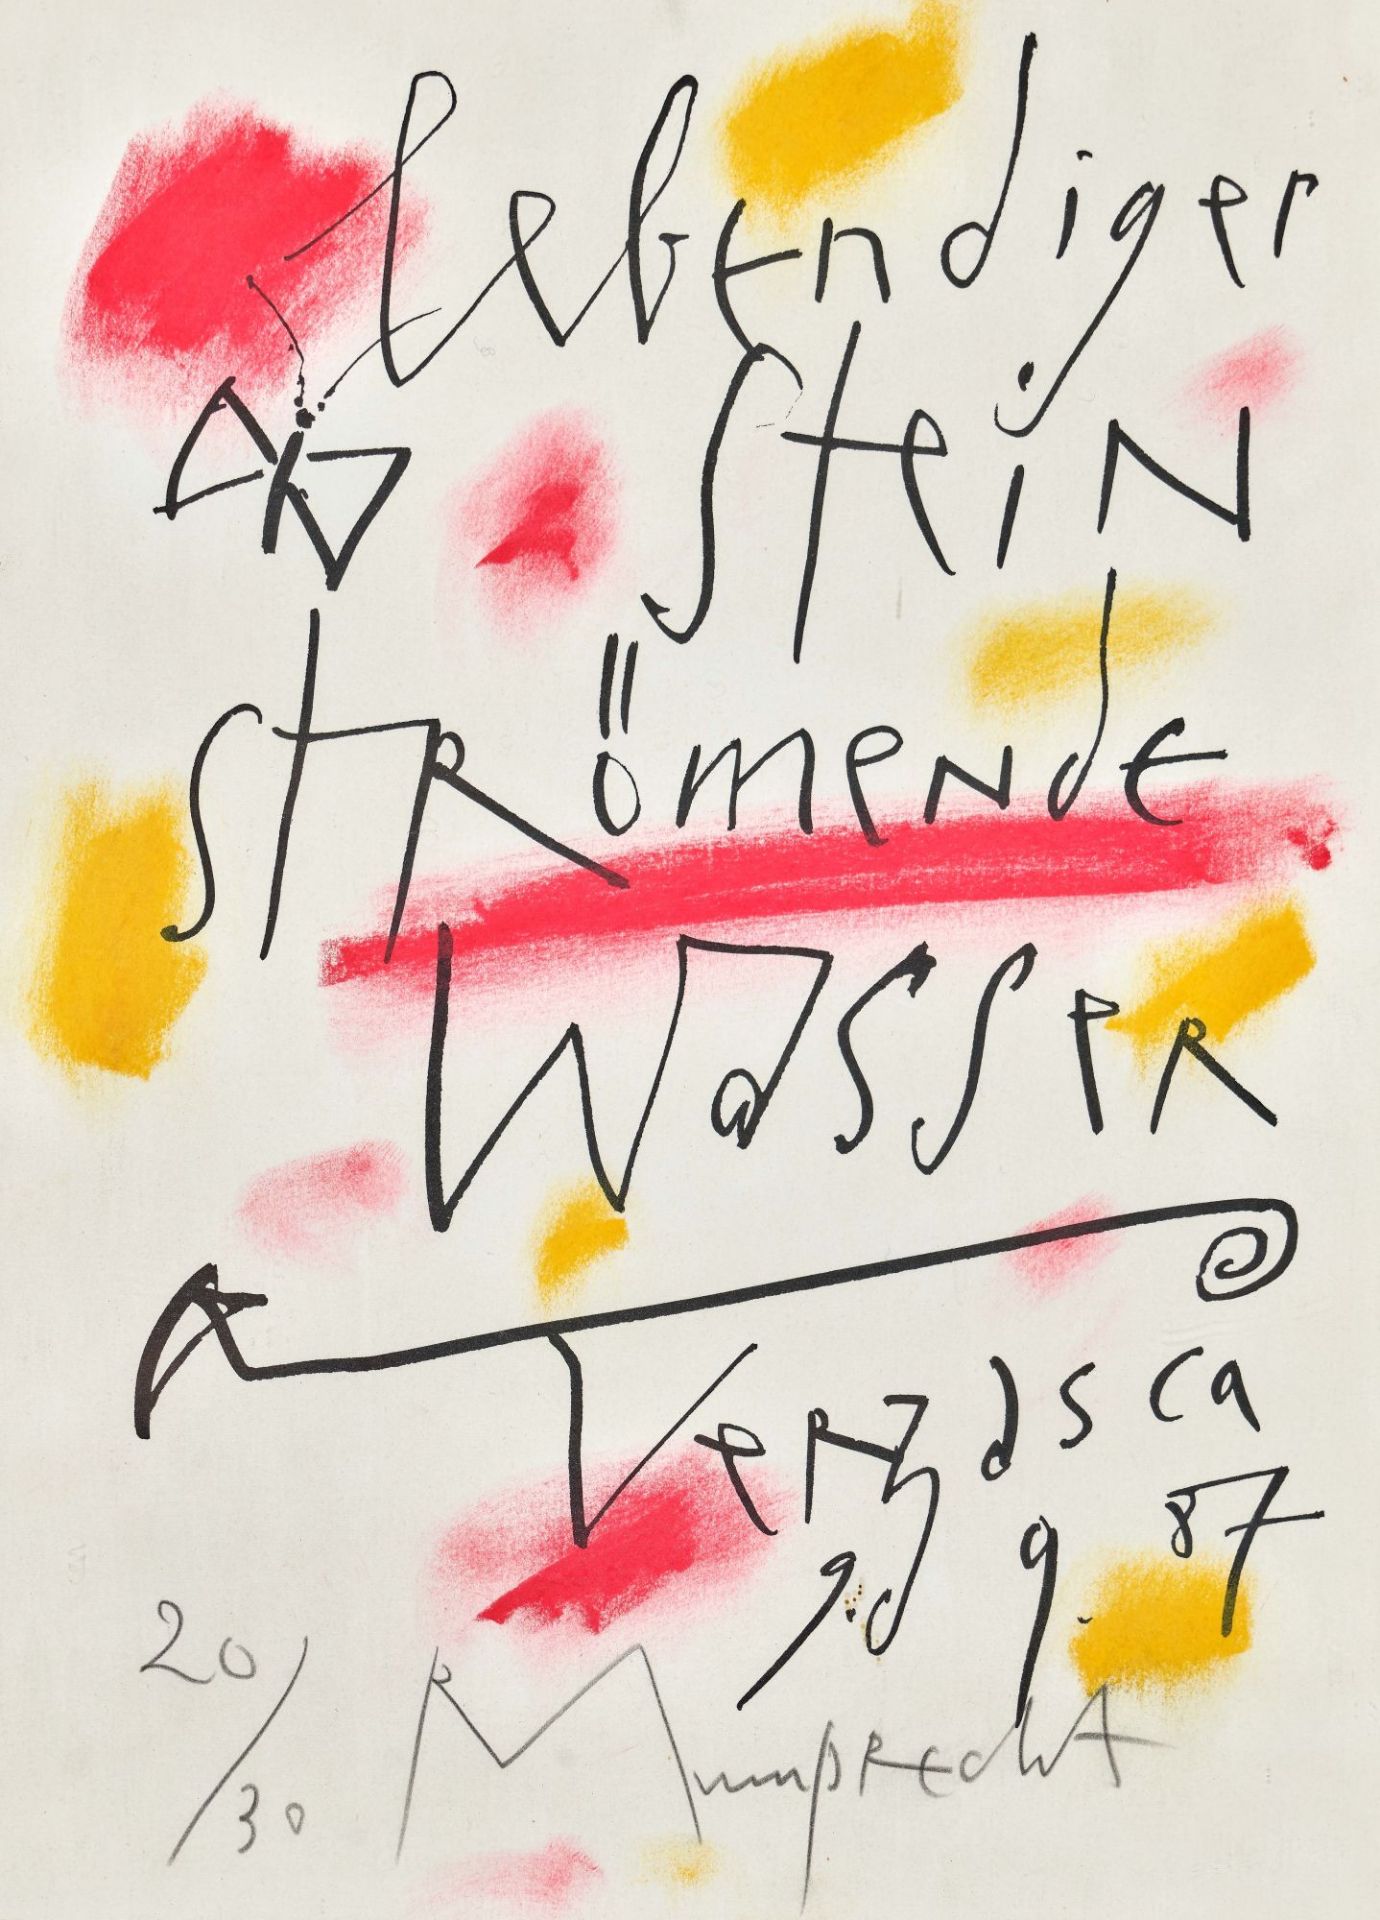 lebendiger
Stein
strömende
Wasser
Verzasca
9. 9. 87
20/30 R Mumprecht